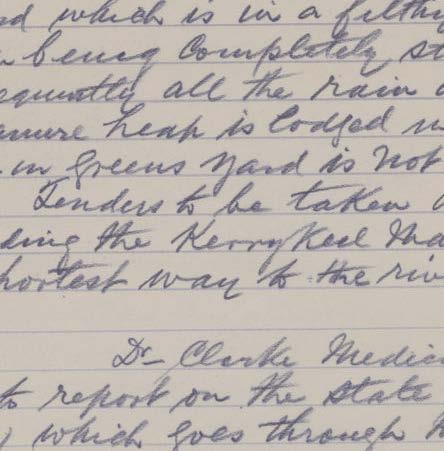 d which is in a filthy
being completely st
equently all the rain
anure heap is lodged
in Greens yard is not
Tenders to be taken
ding the Kerrykeel Ma
hortest way to the riv
Dr Clarke Medic
to report on the state
which goes through